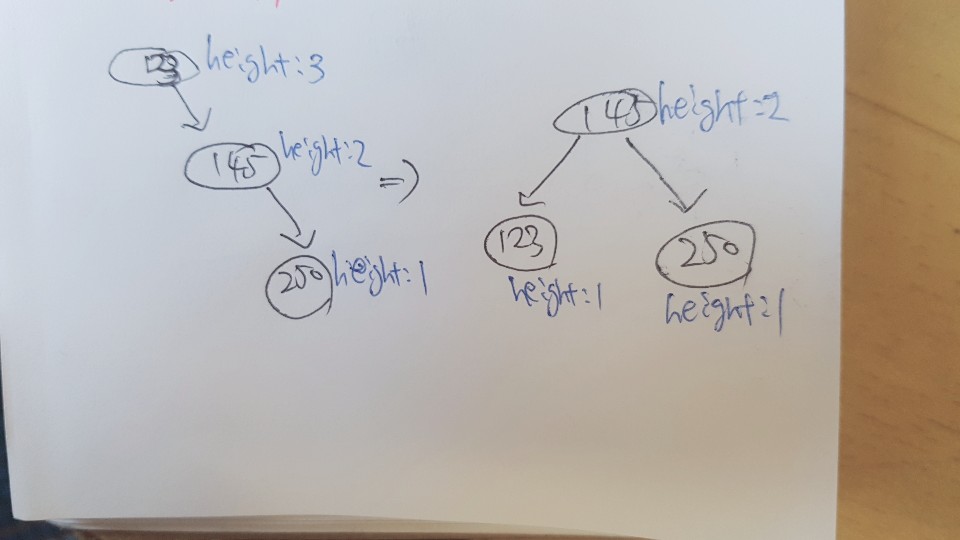 123 height:3
145 height:2
250 height:1
=>
145 height=2
123
height:1
250
height:1